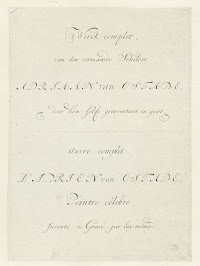 Werck complet,
van den vermaarde Schilder
ADRIAAN van OSTADE,
door hem selfs geinventeert en geest
Œuvre complet
D'ADRIEN van OSTADE,
Peintre célèbre
Inventé & Gravé par lui même